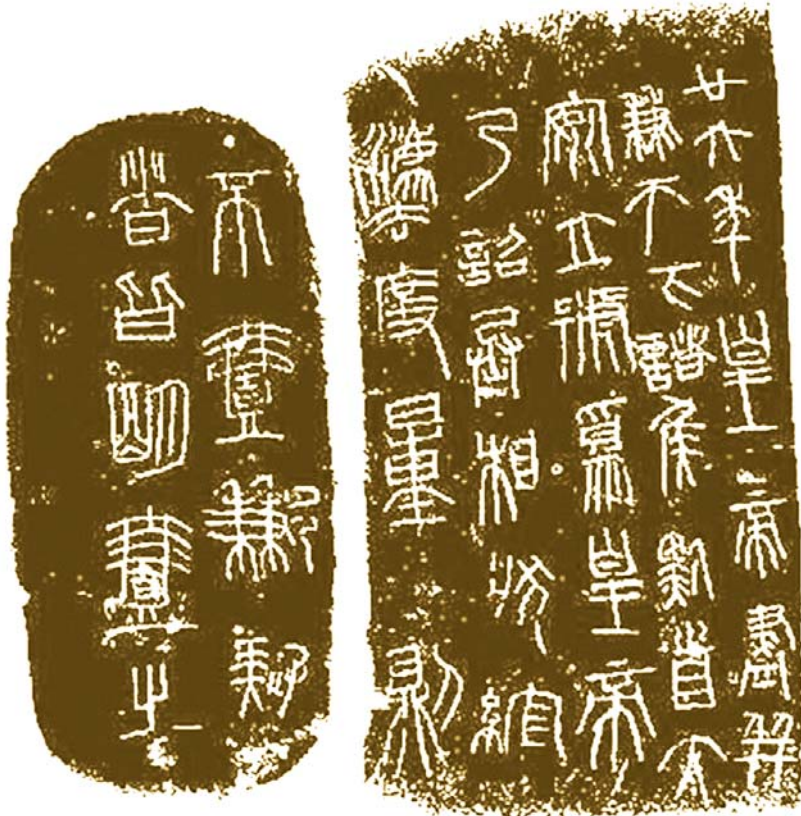 廿六年皇帝盡并
兼天下諸侯黔首大
安立號為皇帝
乃詔丞相狀綰
灋度量則
不壹歉疑
者皆明壹之